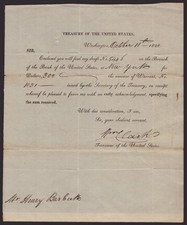 TREASURY OF THE UNITED STATES,
Washington, 11th
SIR,
Enclosed you will find my draft No. on the Branch
of the Bank of the United States, at New York for
Dollars, 300 the amount of Warrant No.
of the Secretary of the Treasury, on receipt
whereof be pleased to favor me with an early acknowledgment, specifying
the sum received.
With due consideration, I am
Your obedient servant,
Clark
Treasurer of the United States.
Mr Henry